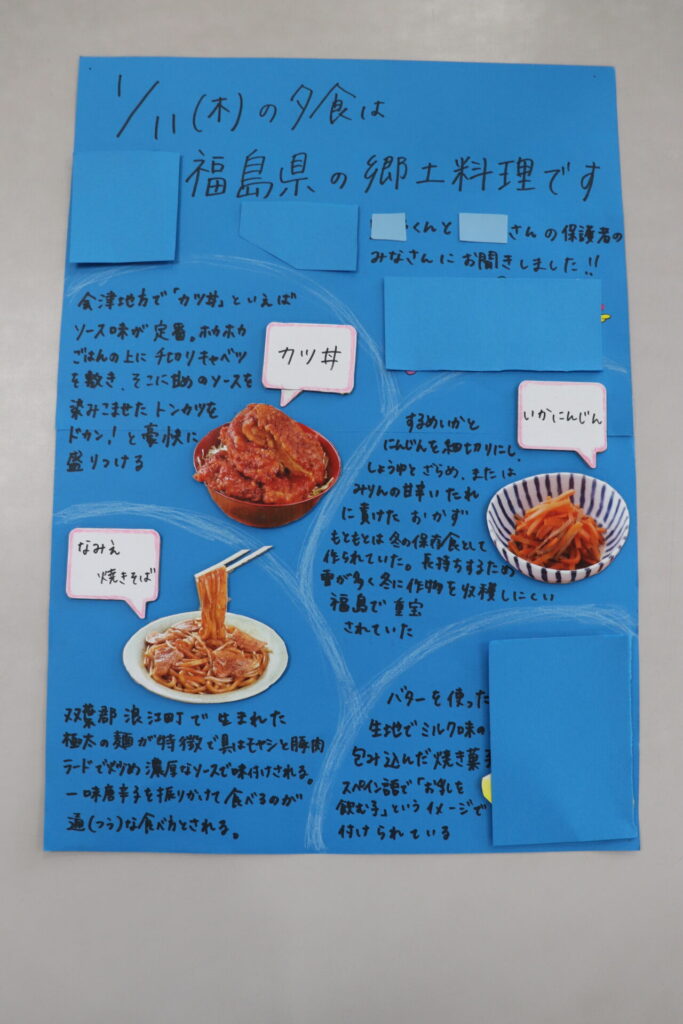 1/11(木)の夕食は
福島県の郷土料理です
くんと さんの保護者の
みなさんにお聞きしました!!
会津地方で「カツ丼」といえば
ソース味が定番。ホカホカ
ごはんの上に千切りキャベツ
を敷き、そこに甘めのソースを
染みこませたトンカツを
ドカン!と豪快に
盛りつける
カツ丼
いかにんじん
するめいかと
にんじんを細切りにし、
しょうゆとざらめ、または
みりんの甘辛いたれ
に漬けたおかず
もともとは冬の保存食として
作られていた。長持ちするため
雪が多く冬に作物を収穫しにくい
福島で重宝
されていた
なみえ
焼きそば
双葉郡浪江町で生まれた
極太の麺が特徴で具はモヤシと豚肉
ラードで炒め濃厚なソースで味付けされる。
一味唐辛子を振りかけて食べるのが
通(つう)な食べ方とされる。
バターを使った
生地でミルク味の
包み込んだ焼き菓子
スペイン語で「お乳を
飲む子」というイメージで
付けられている